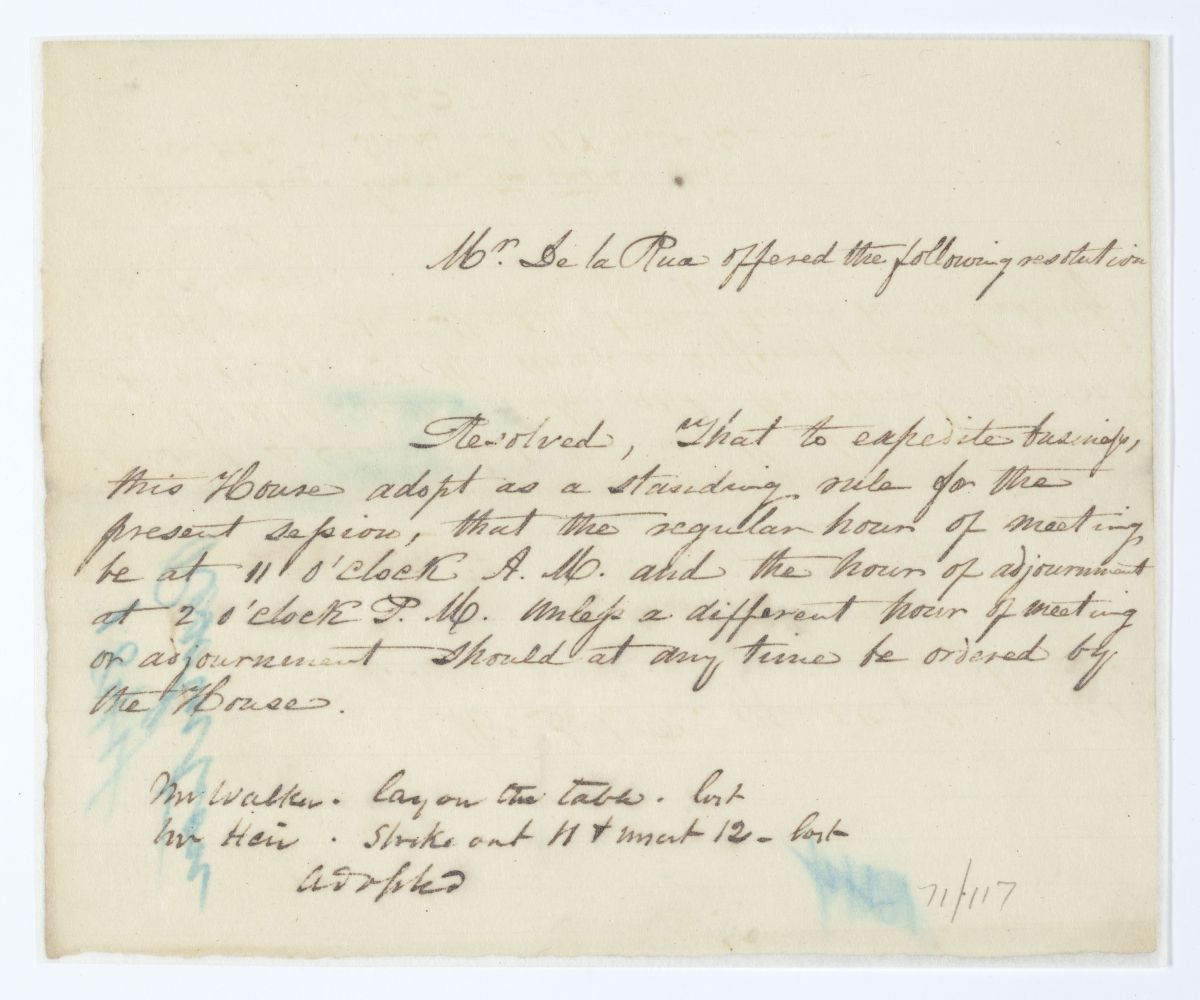 Mr. De la Rua offered the following resolution
Resolved, That to expedite business,
this House adopt as a standing rule for the
present session, that the regular hour of meeting
be at 11 o'clock A. M. and the hour of adjournment
at 2 o'clock P. M. unless a different hour of meeting
or adjournment should at any time be ordered by
the House.
Mr Walker. lay on the table. lost
Mr Heir. Strike out 11 & insert 12 - lost
Adopted
71/117